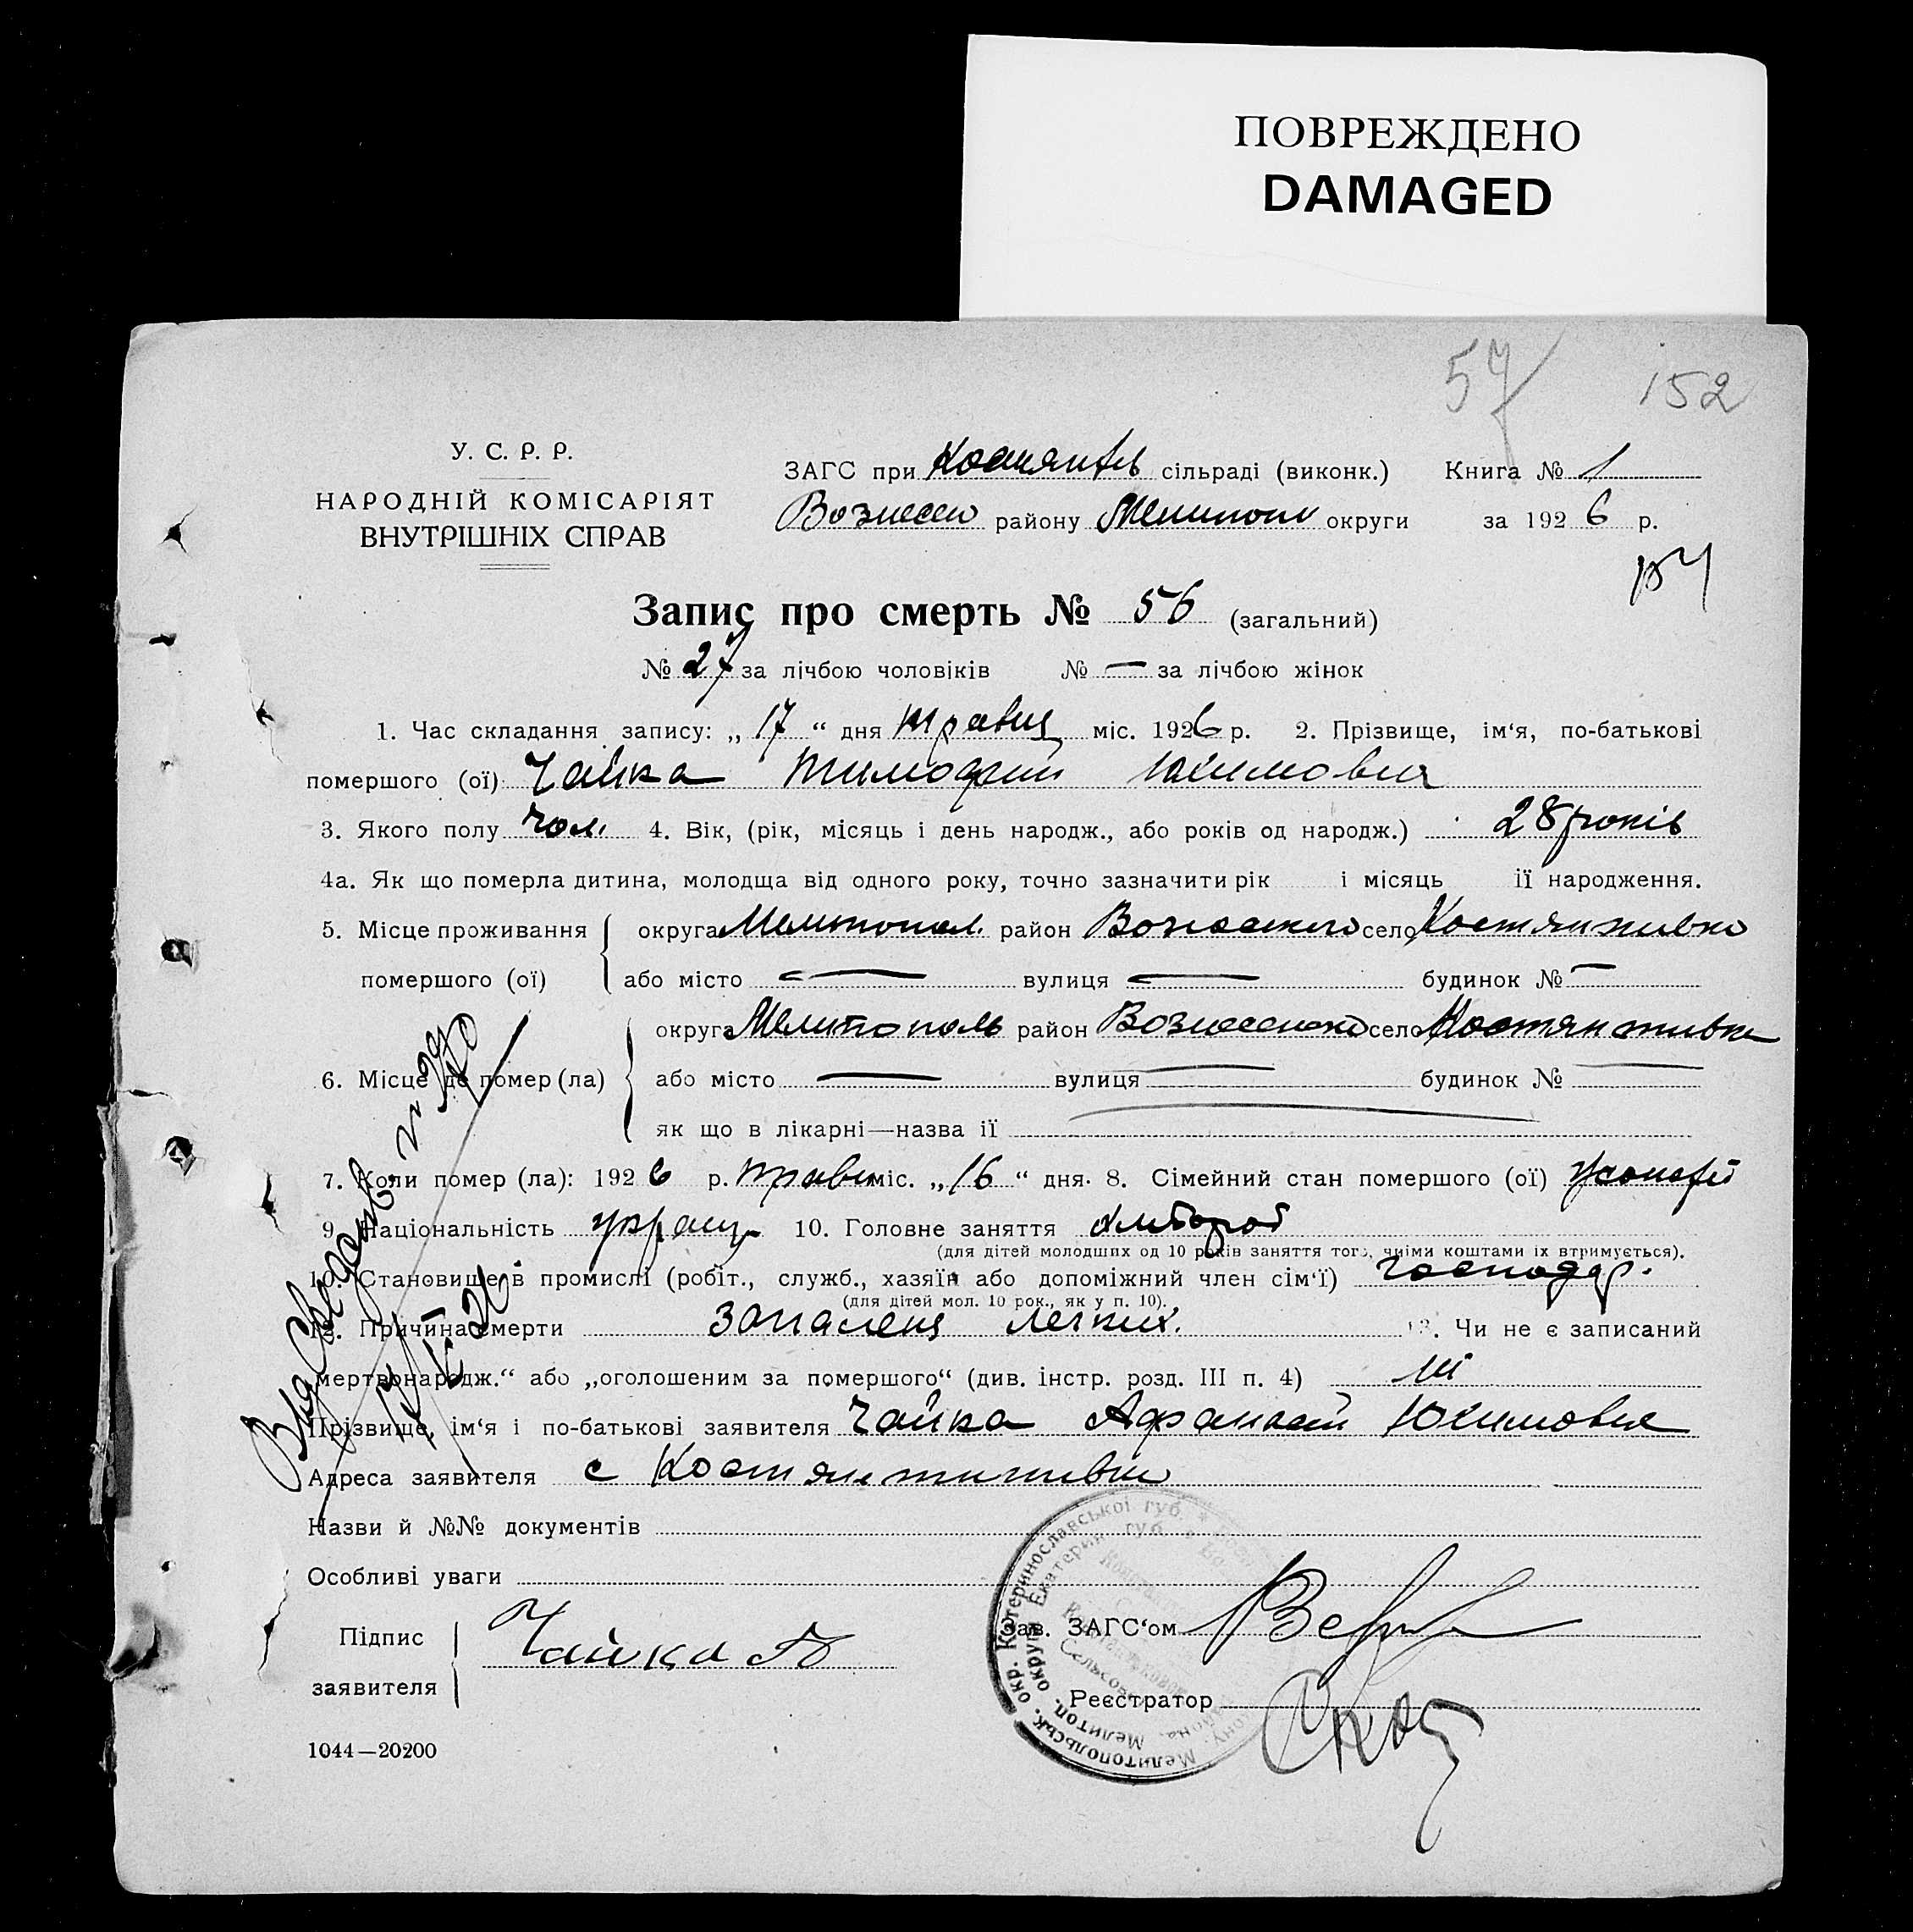 ПОВРЕЖДЕНО
DAMAGED
57 152
У. С. Р. Р.
НАРОДНІЙ КОМІСАРІЯТ
ВНУТРІШНІХ СПРАВ
ЗАГС при Костянтів сільраді (виконк.) Книга № 1
Вознесен району Мелитопол округи за 1926 р.
Запис про смерть № 56 (загальний)
№ 27 за лічбою чоловіків № — за лічбою жінок
1. Час складання запису: „ 17 “ дня травня міс. 1926 р. 2. Прізвище, ім'я, по-батькові
помершого (ої) Чайка Тимофий Юхимович
3. Якого полу чол. 4. Вік, (рік, місяць і день народж., або років од народж.) 28 років
4а. Як що померла дитина, молодща від одного року, точно зазначити рік і місяць її народження.
5. Місце проживання помершого (ої) округа Мелитопол. район село Костянтивка
або місто — вулиця — будинок № —
6. Місце де помер (ла) округа Мелитополь район село Костянтивка
або місто — вулиця — будинок № —
як що в лікарні—назва її —
7. Коли помер (ла): 1926 р. травн міс. „ 16 “ дня. 8. Сімейний стан помершого (ої)
9. Національність україн 10. Головне заняття хлибороб
(для дітей молодших од 10 років заняття того, чиїми коштами їх втримується).
Становище в промислі (робіт., служб., хазяїн або допоміжний член сім'ї) господар.
(для дітей мол. 10 рок., як у п. 10).
12. Причина смерти запаленя легких. 13. Чи не є записаний
мертвонародж.“ або „оголошеним за помершого“ (див. інстр. розд. III п. 4) ні
Прізвище, ім'я і по-батькові заявителя Чайка Афанасий Юхимович
Адреса заявителя с Костянтинивка
Назви й №№ документів
Особливі уваги
Підпис заявителя Чайка А
Зав. ЗАГС'ом
Реєстратор
1044—20200